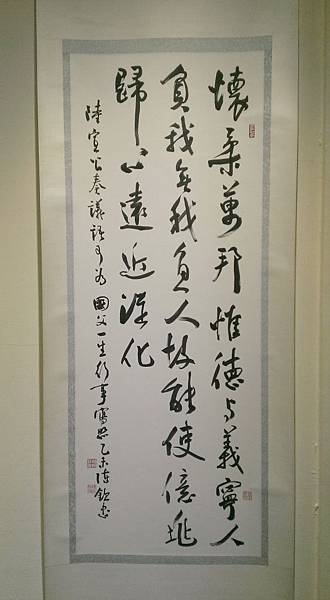 懷柔萬邦惟德与義寧人
負我無我負人故能使億兆
歸心遠近湼化
陸宣公奏議語可為 國父一生行事寫照乙未陳欽忠